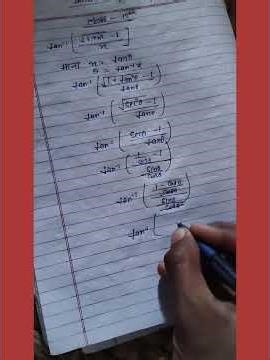 tan⁻¹ [ (√1+x² - 1) / x ]
माना x = tanθ
θ = tan⁻¹x
tan⁻¹ ( (√1 + tan²θ - 1) / tanθ )
tan⁻¹ ( (√sec²θ - 1) / tanθ )
tan⁻¹ ( (secθ - 1) / tanθ )
tan⁻¹ ( (1/cosθ - 1) / (sinθ/cosθ) )
tan⁻¹ ( ((1 - cosθ)/cosθ) / (sinθ/cosθ) )
tan⁻¹ (